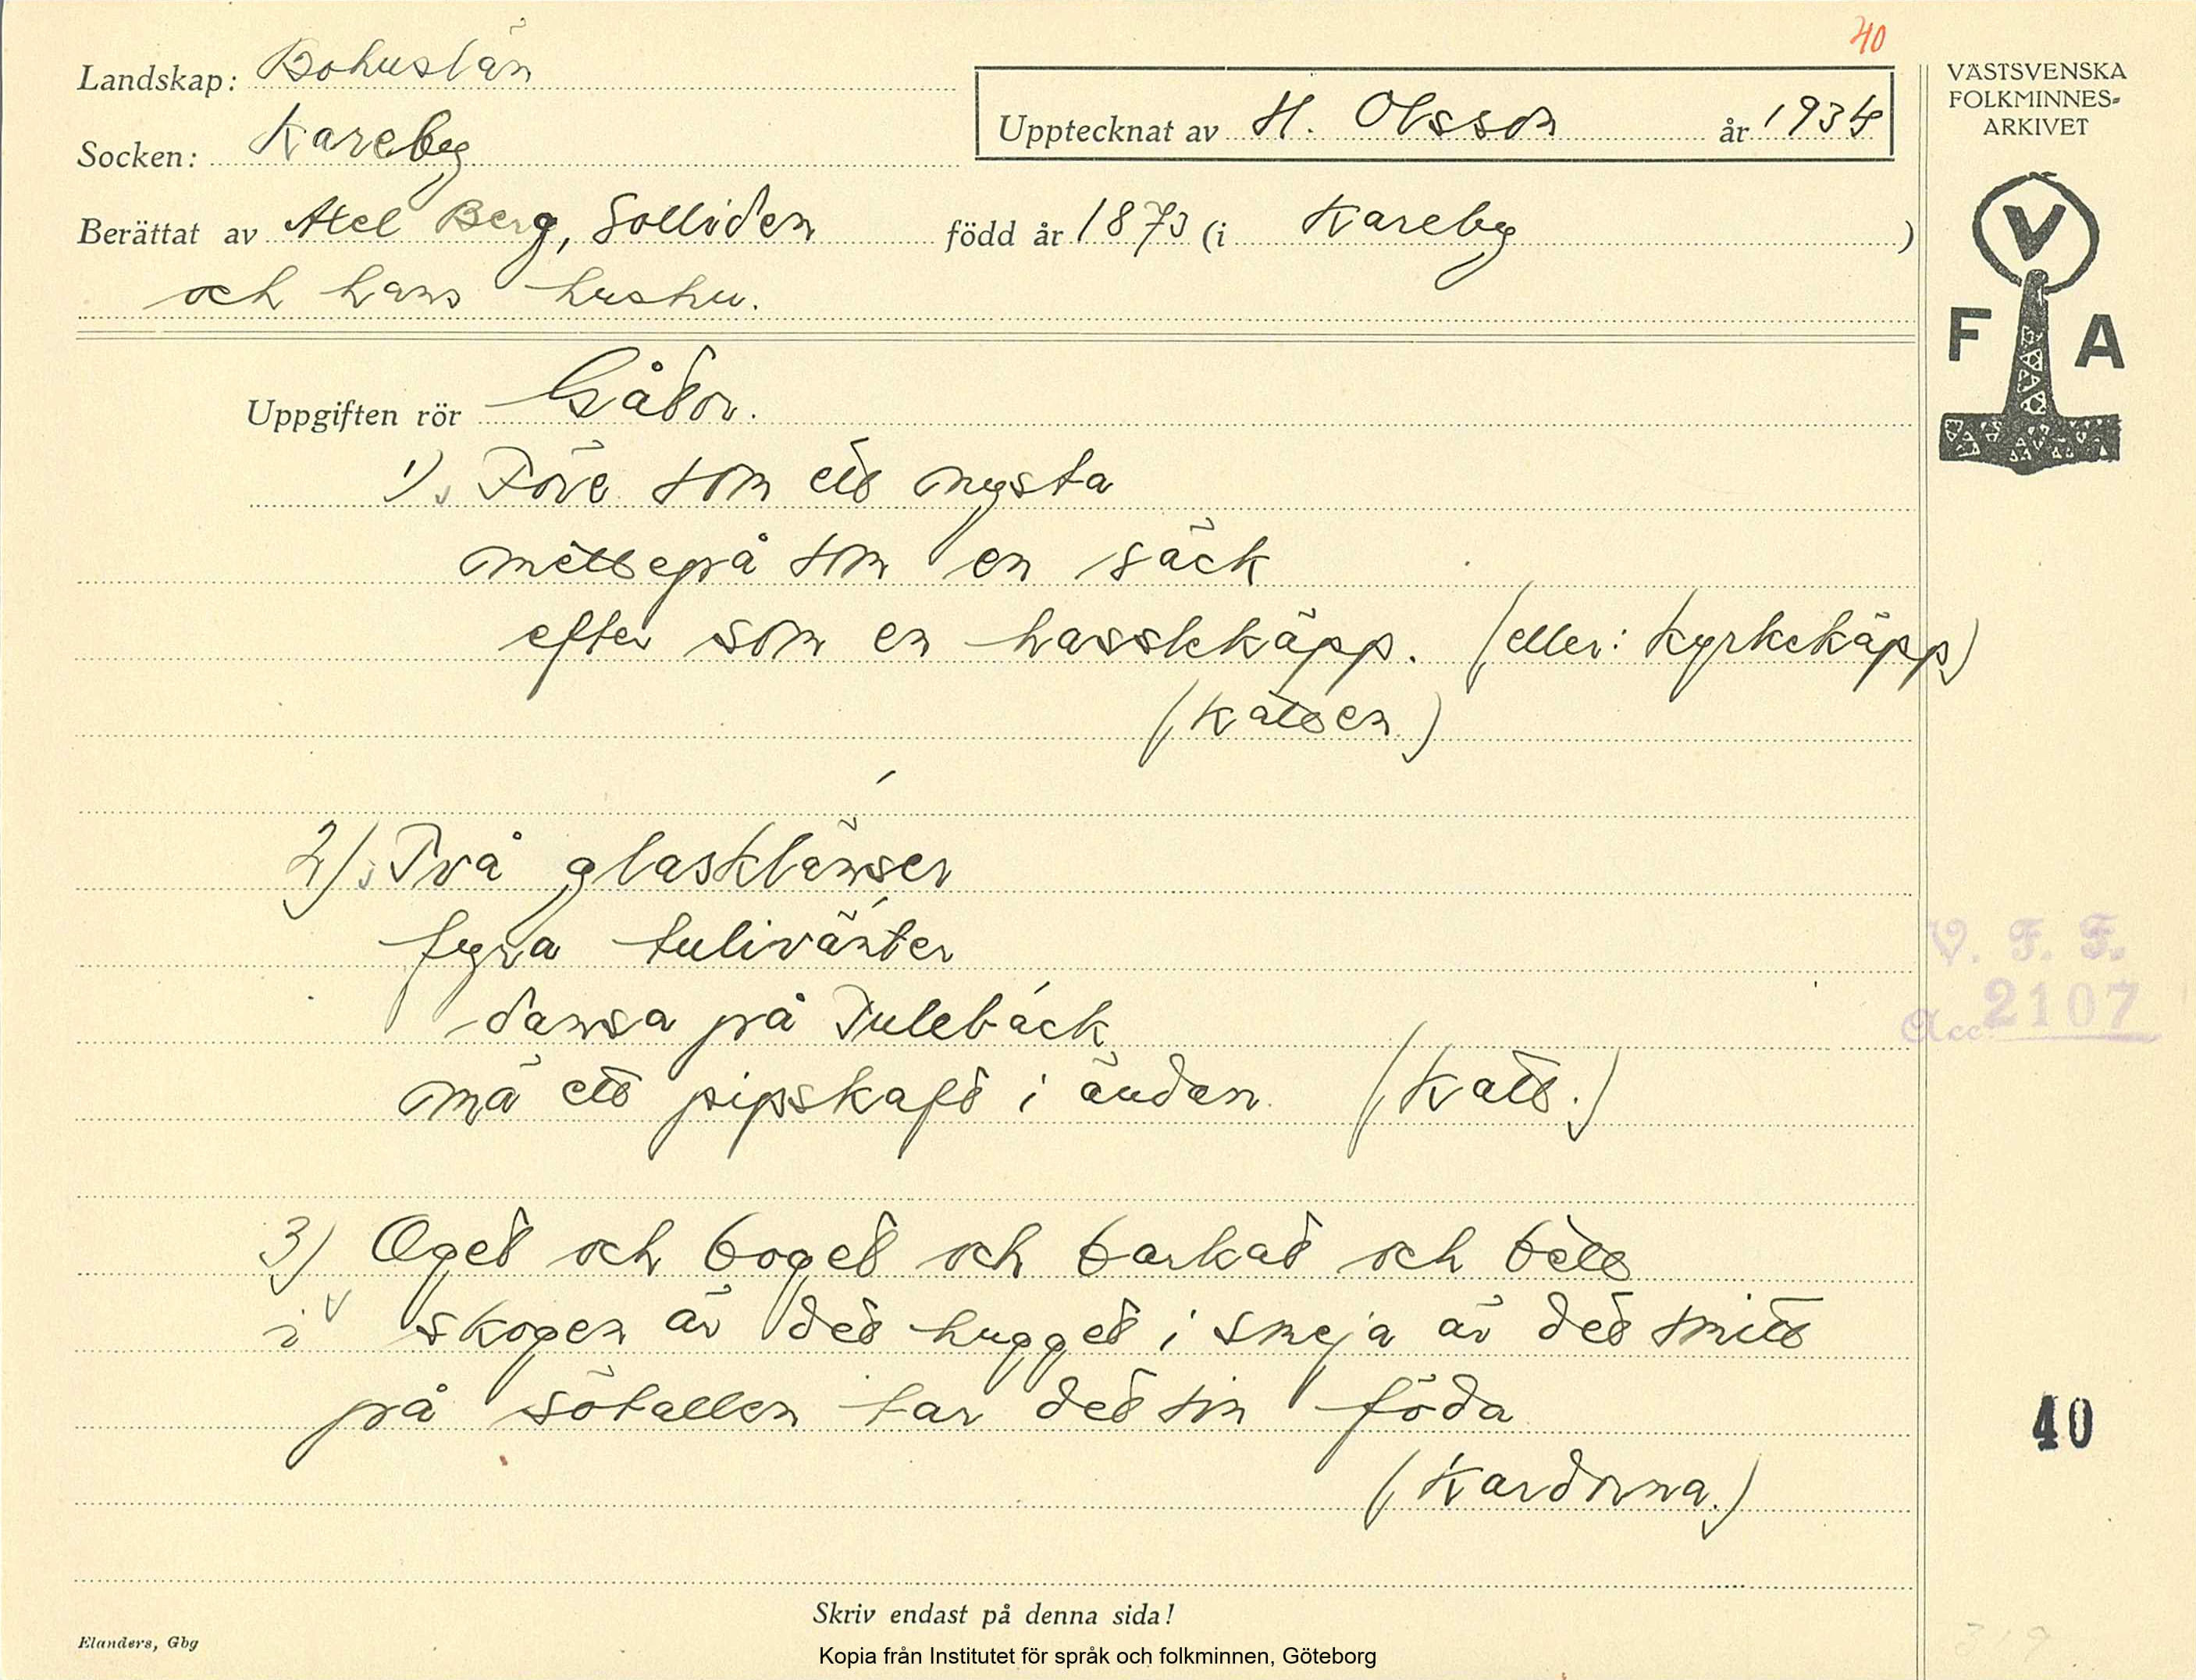 40
Landskap: Bohuslän
Socken: Kareby
Upptecknat av H. Olsson år 1934
Berättat av Axel Berg, Solliden född år 1873 (i Kareby)
och hans hustru.
VÄSTSVENSKA
FOLKMINNES-
ARKIVET
V
F A
Uppgiften rör Gåtor.
1) Före som ett nysta
mettepå som en säck
efter som en hasslekäpp. (eller: kyrkekäpp)
(Katten)
2) Två glasklänser
fyra tulivänter
dansa på Tulebäck
mä ett pipskaft i ändan (Katt.)
3) Öget och boget och barkat och bett
i skogen är det hugget i smeja är det smitt
på sötallen tar det sin föda
(Kardorna.)
V. F. F.
Acc 2107
40
Skriv endast på denna sida!
Elanders, Gbg
Kopia från Institutet för språk och folkminnen, Göteborg